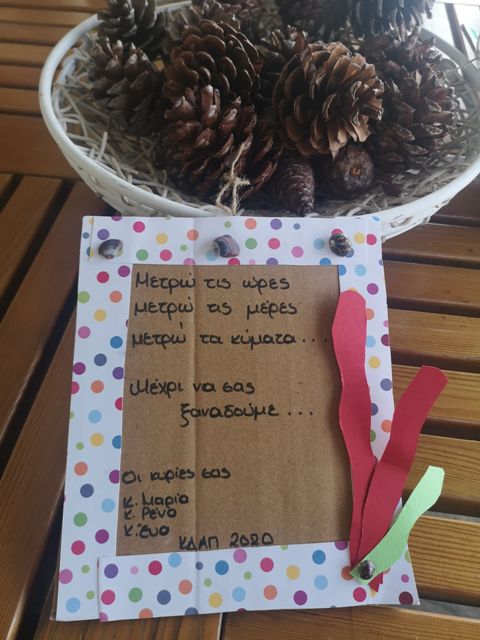 Μετρώ τις ώρες
μετρώ τις μέρες
μετρώ τα κύματα...
Μέχρι να σας
ξαναδούμε...
Οι κυρίες σας
κ. Μαρία
κ. Ρένα
κ. Εύα
ΚΔΑΠ 2020